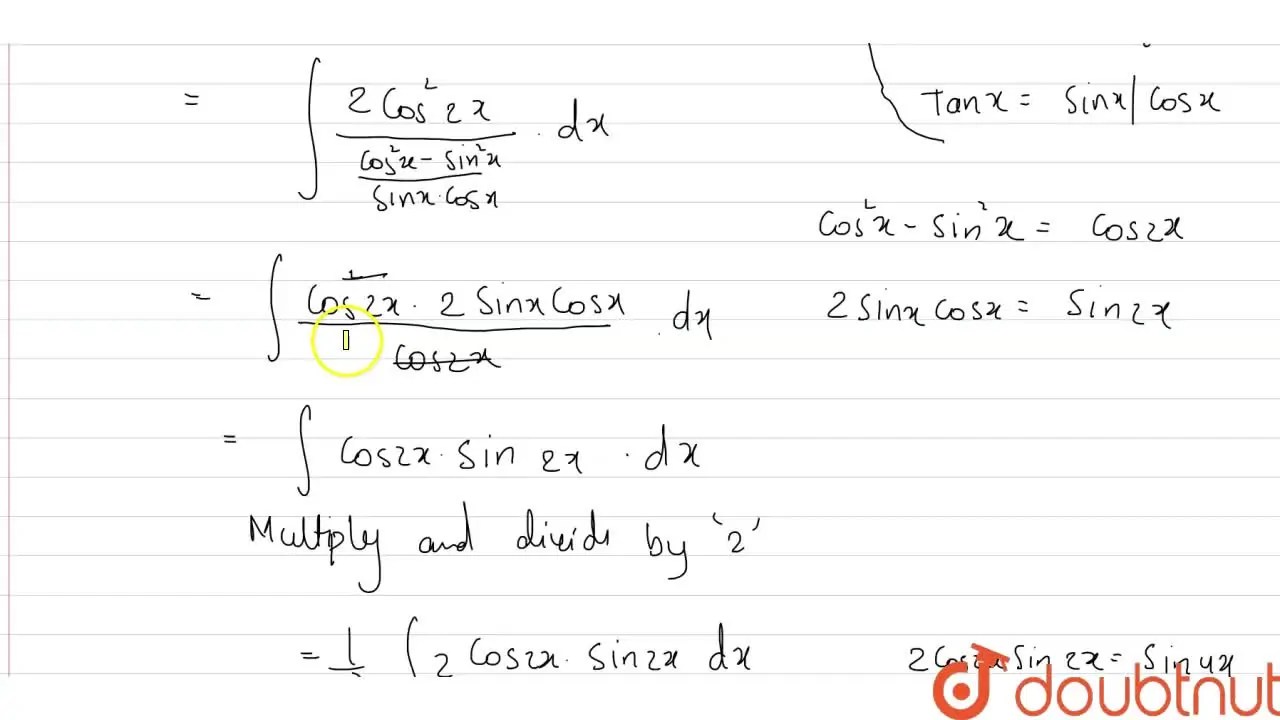 Tan x = Sinx/Cosx
= ∫ 2 Cos² 2x / ((Cos²x - Sin²x) / (Sinx·Cosx)) · dx
Cos²x - Sin²x = Cos2x
= ∫ Cos²2x · 2 Sinx Cosx / Cos2x · dx
2 Sinx Cosx = Sin2x
= ∫ Cos2x · Sin 2x · dx
Multiply and divide by '2'
= 1/2 ∫ 2 Cos2x · Sin2x dx
2 Cos2x Sin 2x = Sin4x
doubtnut